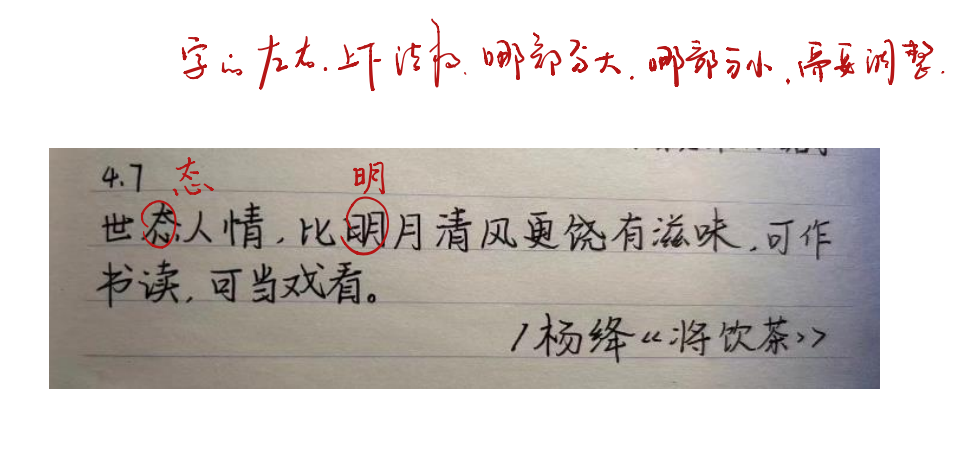 字的左右、上下结构,哪部分大,哪部分小,需要调整.
4.7 态 明
世态人情,比明月清风更饶有滋味,可作
书读,可当戏看。
/杨绛《将饮茶》